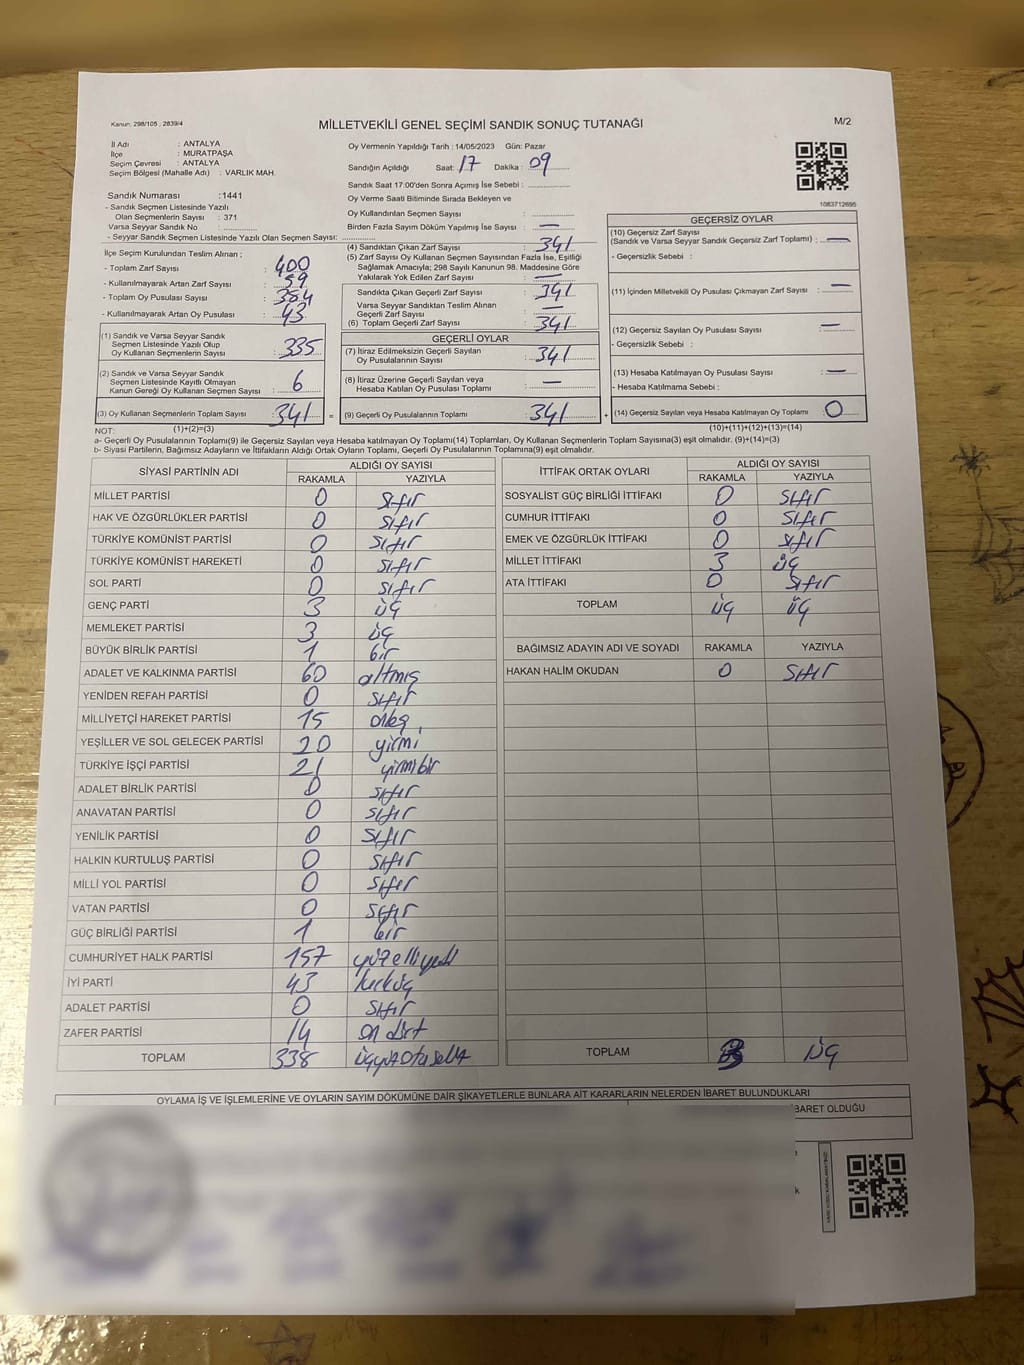 Kanun: 298/105 ; 2839/4
MİLLETVEKİLİ GENEL SEÇİMİ SANDIK SONUÇ TUTANAĞI
M/2
İl Adı : ANTALYA
İlçe : MURATPAŞA
Seçim Çevresi : ANTALYA
Seçim Bölgesi (Mahalle Adı) : VARLIK MAH.
Sandık Numarası :1441
- Sandık Seçmen Listesinde Yazılı
Olan Seçmenlerin Sayısı : 371
Varsa Seyyar Sandık No :
- Seyyar Sandık Seçmen Listesinde Yazılı Olan Seçmen Sayısı:
İlçe Seçim Kurulundan Teslim Alınan ;
- Toplam Zarf Sayısı : 400
- Kullanılmayarak Artan Zarf Sayısı : 59
- Toplam Oy Pusulası Sayısı : 384
- Kullanılmayarak Artan Oy Pusulası : 43
(1) Sandık ve Varsa Seyyar Sandık
Seçmen Listesinde Yazılı Olup
Oy Kullanan Seçmenlerin Sayısı : 335
(2) Sandık ve Varsa Seyyar Sandık
Seçmen Listesinde Kayıtlı Olmayan
Kanun Gereği Oy Kullanan Seçmen Sayısı : 6
(3) Oy Kullanan Seçmenlerin Toplam Sayısı : 341 =
(1)+(2)=(3)
Oy Vermenin Yapıldığı Tarih : 14/05/2023 Gün: Pazar
Sandığın Açıldığı Saat: 17 Dakika : 09
Sandık Saat 17:00'den Sonra Açılmış İse Sebebi :
Oy Verme Saati Bitiminde Sırada Bekleyen ve
Oy Kullandırılan Seçmen Sayısı :
Birden Fazla Sayım Döküm Yapılmış İse Sayısı : —
(4) Sandıktan Çıkan Zarf Sayısı : 341
(5) Zarf Sayısı Oy Kullanan Seçmen Sayısından Fazla İse, Eşitliği
Sağlamak Amacıyla; 298 Sayılı Kanunun 98. Maddesine Göre
Yakılarak Yok Edilen Zarf Sayısı : —
Sandıkta Çıkan Geçerli Zarf Sayısı : 341
Varsa Seyyar Sandıktan Teslim Alınan
Geçerli Zarf Sayısı : —
(6) Toplam Geçerli Zarf Sayısı : 341
GEÇERLİ OYLAR
(7) İtiraz Edilmeksizin Geçerli Sayılan
Oy Pusulalarının Sayısı : 341
(8) İtiraz Üzerine Geçerli Sayılan veya
Hesaba Katılan Oy Pusulası Toplamı : —
(9) Geçerli Oy Pusulalarının Toplamı : 341 +
1083712695
GEÇERSİZ OYLAR
(10) Geçersiz Zarf Sayısı
(Sandık ve Varsa Seyyar Sandık Geçersiz Zarf Toplamı) : —
- Geçersizlik Sebebi :
(11) İçinden Milletvekili Oy Pusulası Çıkmayan Zarf Sayısı : —
(12) Geçersiz Sayılan Oy Pusulası Sayısı : —
- Geçersizlik Sebebi :
(13) Hesaba Katılmayan Oy Pusulası Sayısı : —
- Hesaba Katılmama Sebebi :
(14) Geçersiz Sayılan veya Hesaba Katılmayan Oy Toplamı : 0
(10)+(11)+(12)+(13)=(14)
NOT:
a- Geçerli Oy Pusulalarının Toplamı(9) ile Geçersiz Sayılan veya Hesaba katılmayan Oy Toplamı(14) Toplamları, Oy Kullanan Seçmenlerin Toplam Sayısına(3) eşit olmalıdır. (9)+(14)=(3)
b- Siyasi Partilerin, Bağımsız Adayların ve İttifakların Aldığı Ortak Oyların Toplamı, Geçerli Oy Pusulalarının Toplamına(9) eşit olmalıdır.
SİYASİ PARTİNİN ADI ALDIĞI OY SAYISI
RAKAMLA YAZIYLA
MİLLET PARTİSİ 0 sıfır
HAK VE ÖZGÜRLÜKLER PARTİSİ 0 sıfır
TÜRKİYE KOMÜNİST PARTİSİ 0 sıfır
TÜRKİYE KOMÜNİST HAREKETİ 0 sıfır
SOL PARTİ 0 sıfır
GENÇ PARTİ 3 üç
MEMLEKET PARTİSİ 3 üç
BÜYÜK BİRLİK PARTİSİ 1 bir
ADALET VE KALKINMA PARTİSİ 60 altmış
YENİDEN REFAH PARTİSİ 0 sıfır
MİLLİYETÇİ HAREKET PARTİSİ 15 onbeş
YEŞİLLER VE SOL GELECEK PARTİSİ 20 yirmi
TÜRKİYE İŞÇİ PARTİSİ 21 yirmibir
ADALET BİRLİK PARTİSİ 0 sıfır
ANAVATAN PARTİSİ 0 sıfır
YENİLİK PARTİSİ 0 sıfır
HALKIN KURTULUŞ PARTİSİ 0 sıfır
MİLLİ YOL PARTİSİ 0 sıfır
VATAN PARTİSİ 0 sıfır
GÜÇ BİRLİĞİ PARTİSİ 1 bir
CUMHURİYET HALK PARTİSİ 157 yüzelliyedi
İYİ PARTİ 43 kırküç
ADALET PARTİSİ 0 sıfır
ZAFER PARTİSİ 14 on dört
TOPLAM 338 üçyüzotuzsekiz
İTTİFAK ORTAK OYLARI ALDIĞI OY SAYISI
RAKAMLA YAZIYLA
SOSYALİST GÜÇ BİRLİĞİ İTTİFAKI 0 sıfır
CUMHUR İTTİFAKI 0 sıfır
EMEK VE ÖZGÜRLÜK İTTİFAKI 0 sıfır
MİLLET İTTİFAKI 3 üç
ATA İTTİFAKI 0 sıfır
TOPLAM üç üç
BAĞIMSIZ ADAYIN ADI VE SOYADI RAKAMLA YAZIYLA
HAKAN HALİM OKUDAN 0 sıfır
TOPLAM 3 üç
OYLAMA İŞ VE İŞLEMLERİNE VE OYLARIN SAYIM DÖKÜMÜNE DAİR ŞİKAYETLERLE BUNLARA AİT KARARLARIN NELERDEN İBARET BULUNDUKLARI
İBARET OLDUĞU